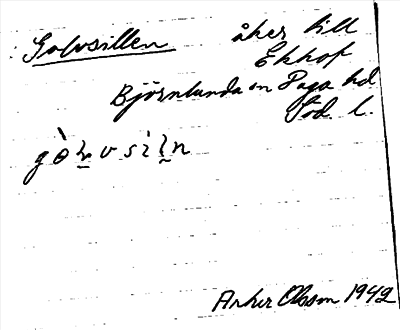 Golvsillen åker till
Ekhof
Björnlunda sn Daga hd
Söd. l.
gòḷvsiḷn
Anker Olsson 1942